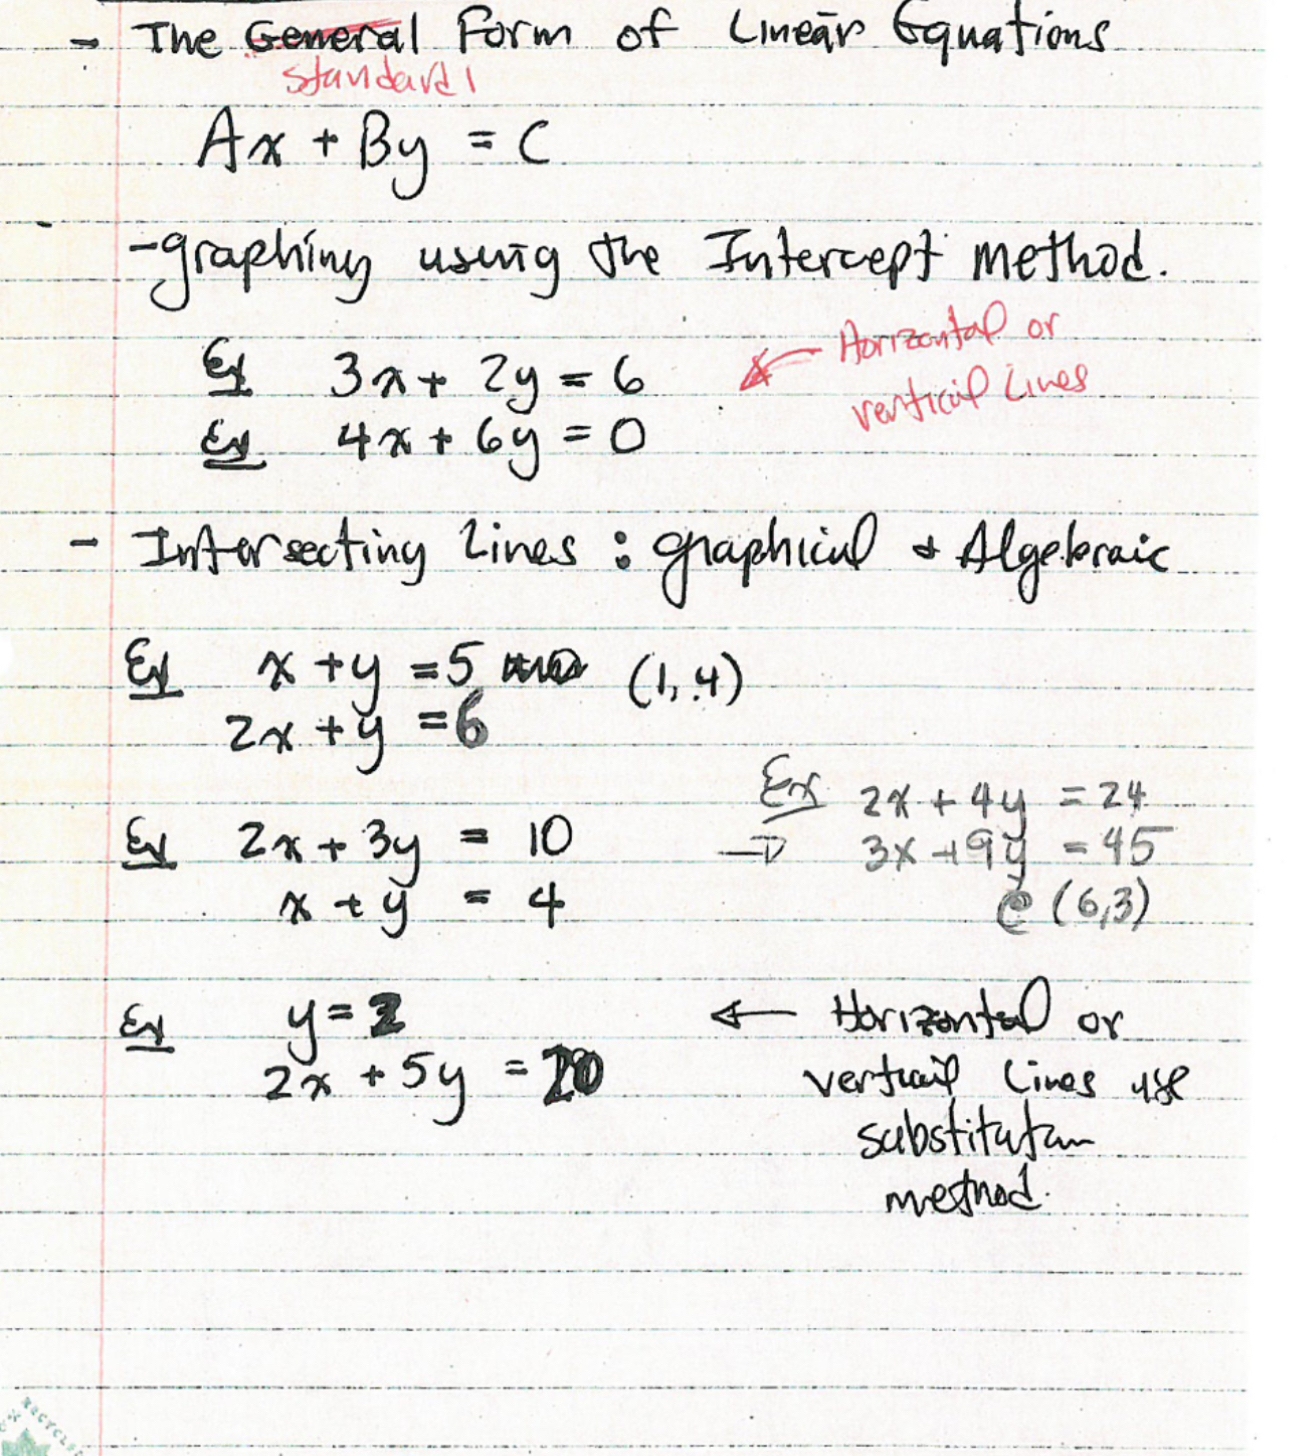 - The General Form of Linear Equations
standard
Ax + By = C
- graphing using the Intercept method.
Ex 3x + 2y = 6
Horizontal or
vertical Lines
Ex 4x + 6y = 0
- Intersecting Lines : graphical & Algebraic
Ex x + y = 5 (1, 4)
2x + y = 6
Ex 2x + 4y = 24
→ 3x + 9y = 45
@ (6,3)
Ex 2x + 3y = 10
x + y = 4
Ex y = 2 ← Horizontal or
2x + 5y = 20 vertical Lines use
substitution
method.
RECYCLED